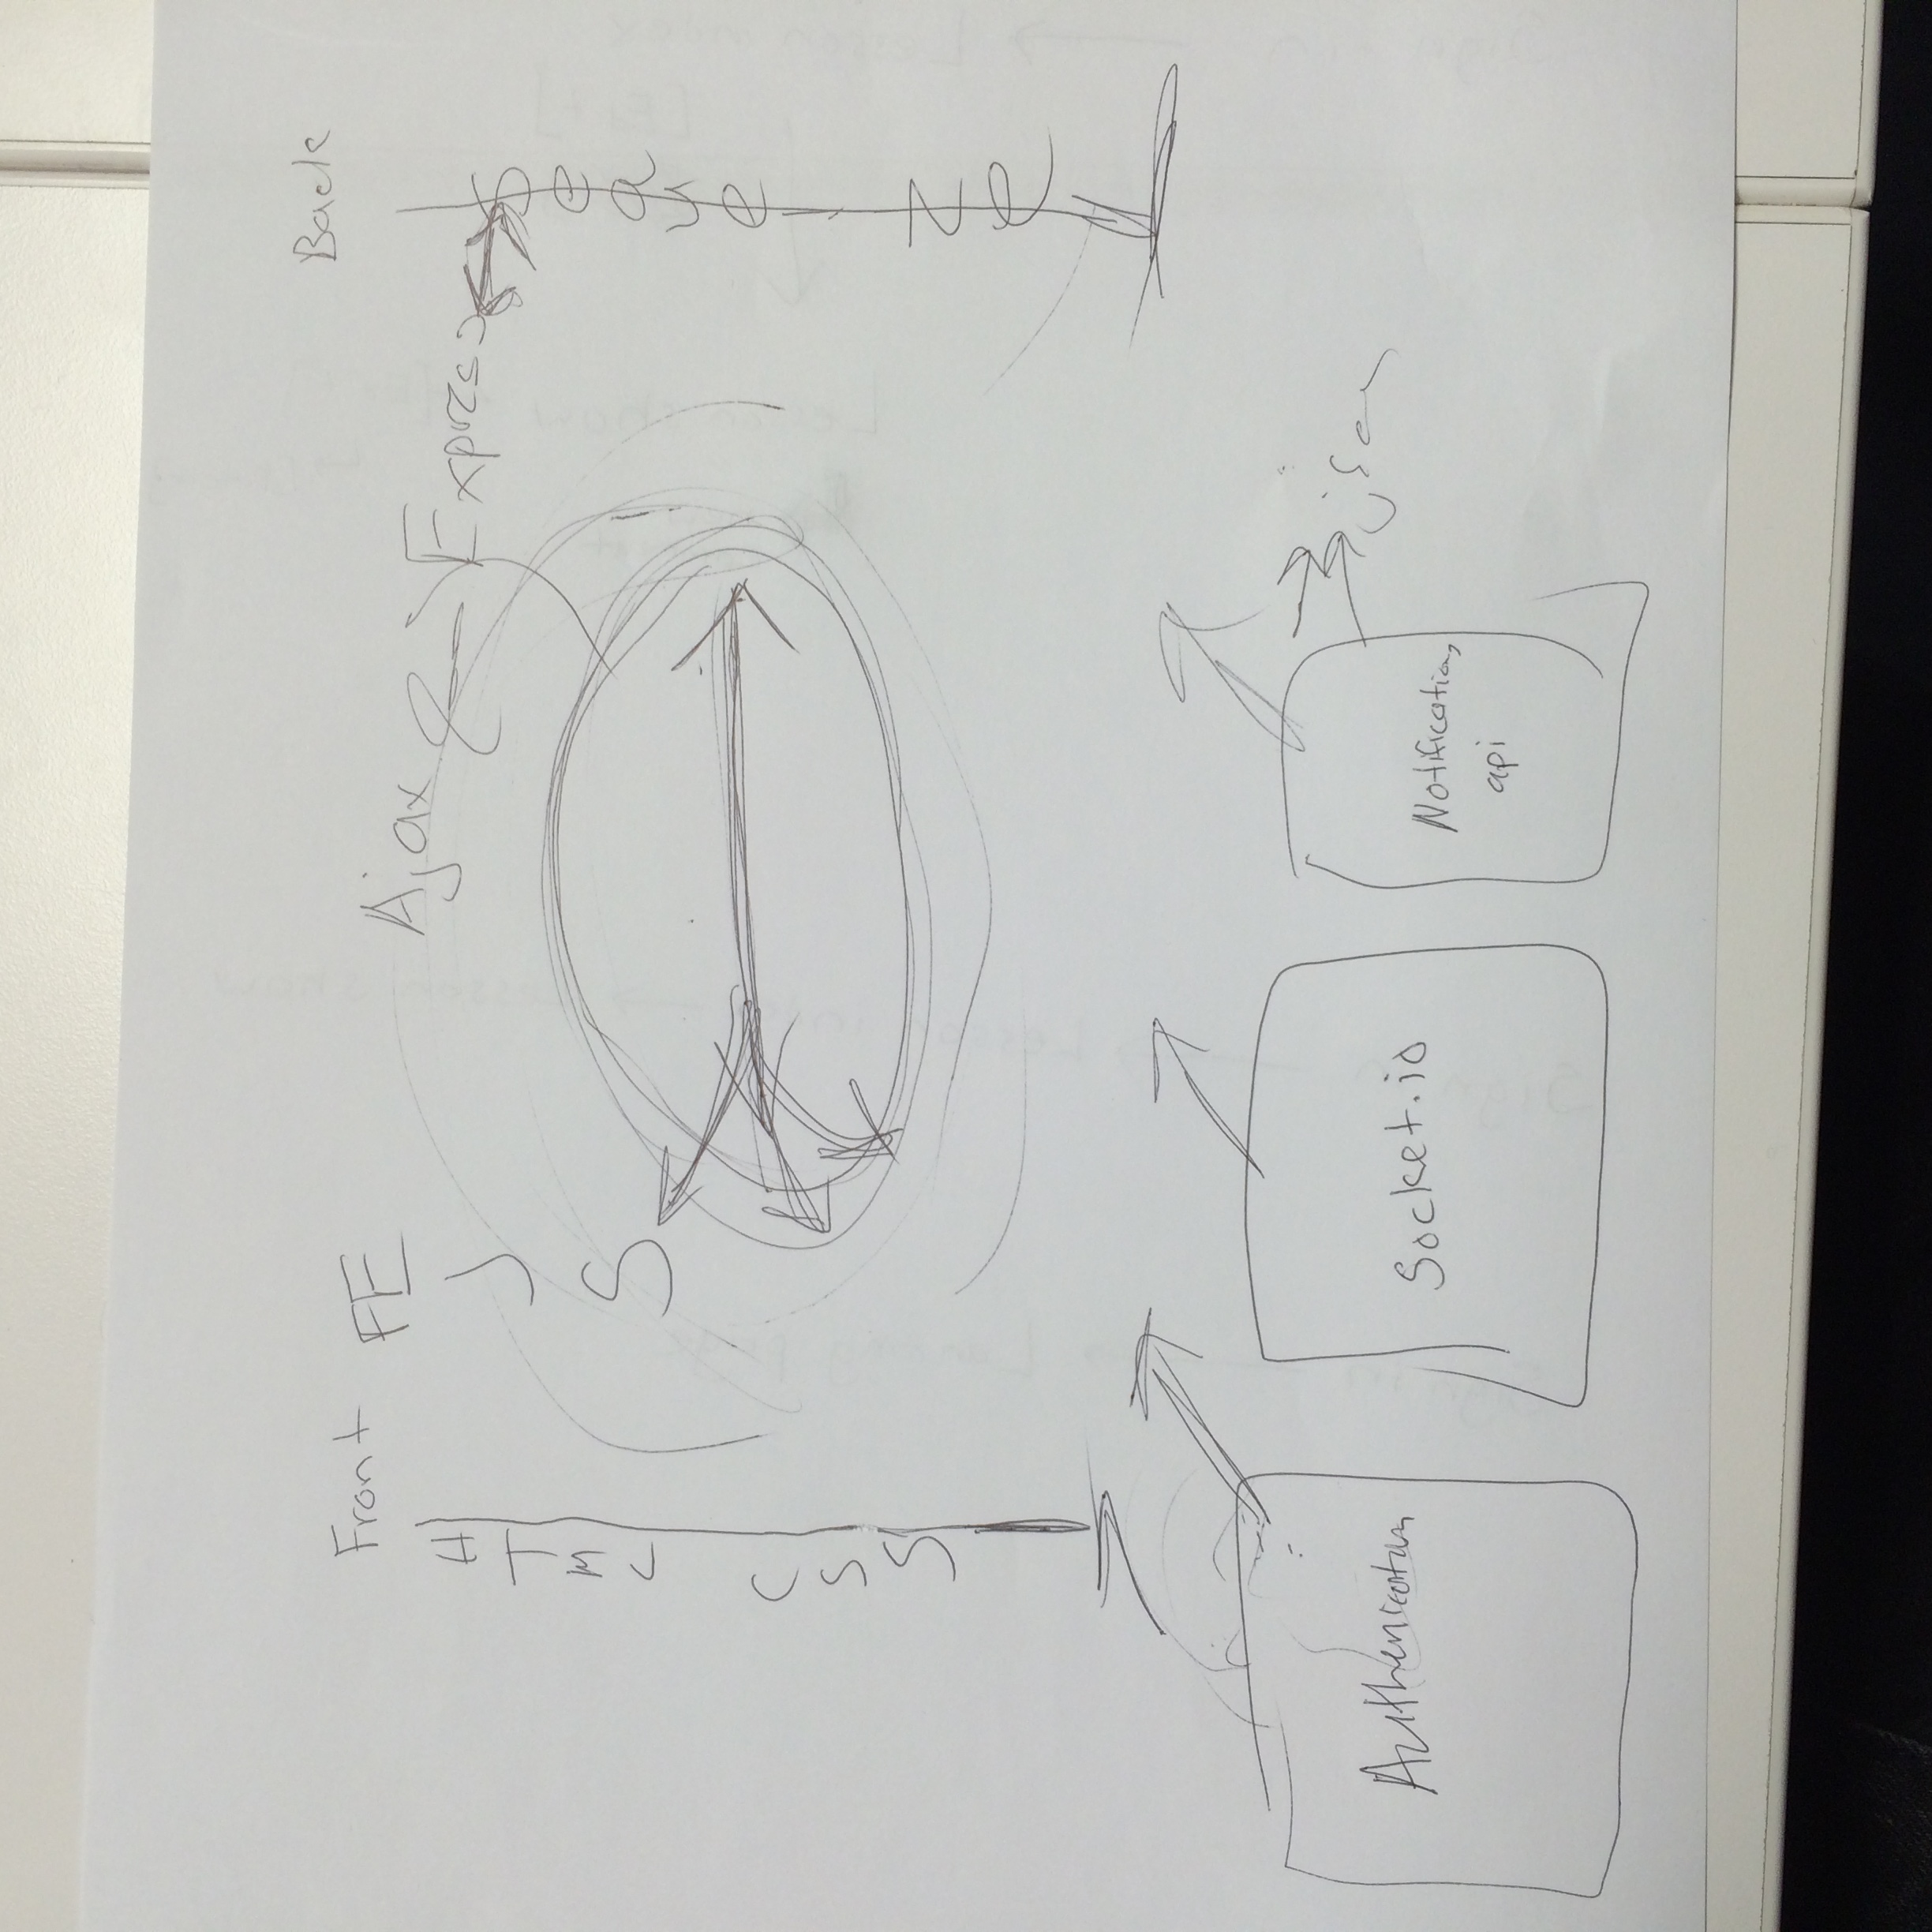 Front
HTML
CSS
FE
JS
Ajax
Express
Back
Sequelize
Authentication
Socket.io
Notification
api
json